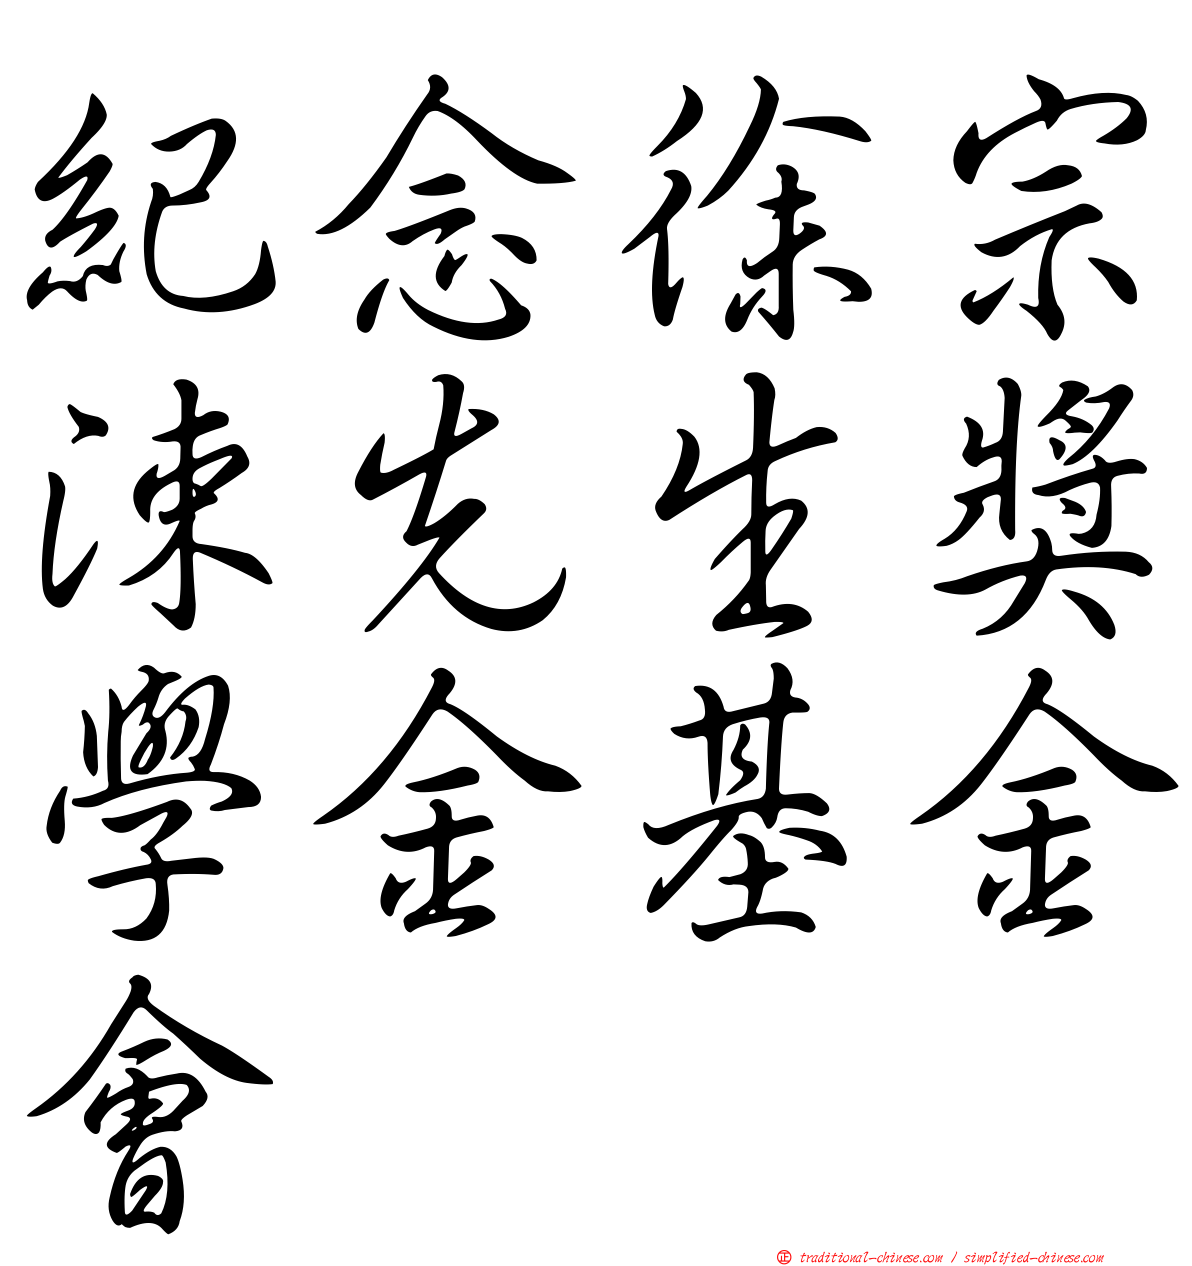 紀念徐宗
涑先生獎
學金基金
會
正 traditional-chinese.com / simplified-chinese.com